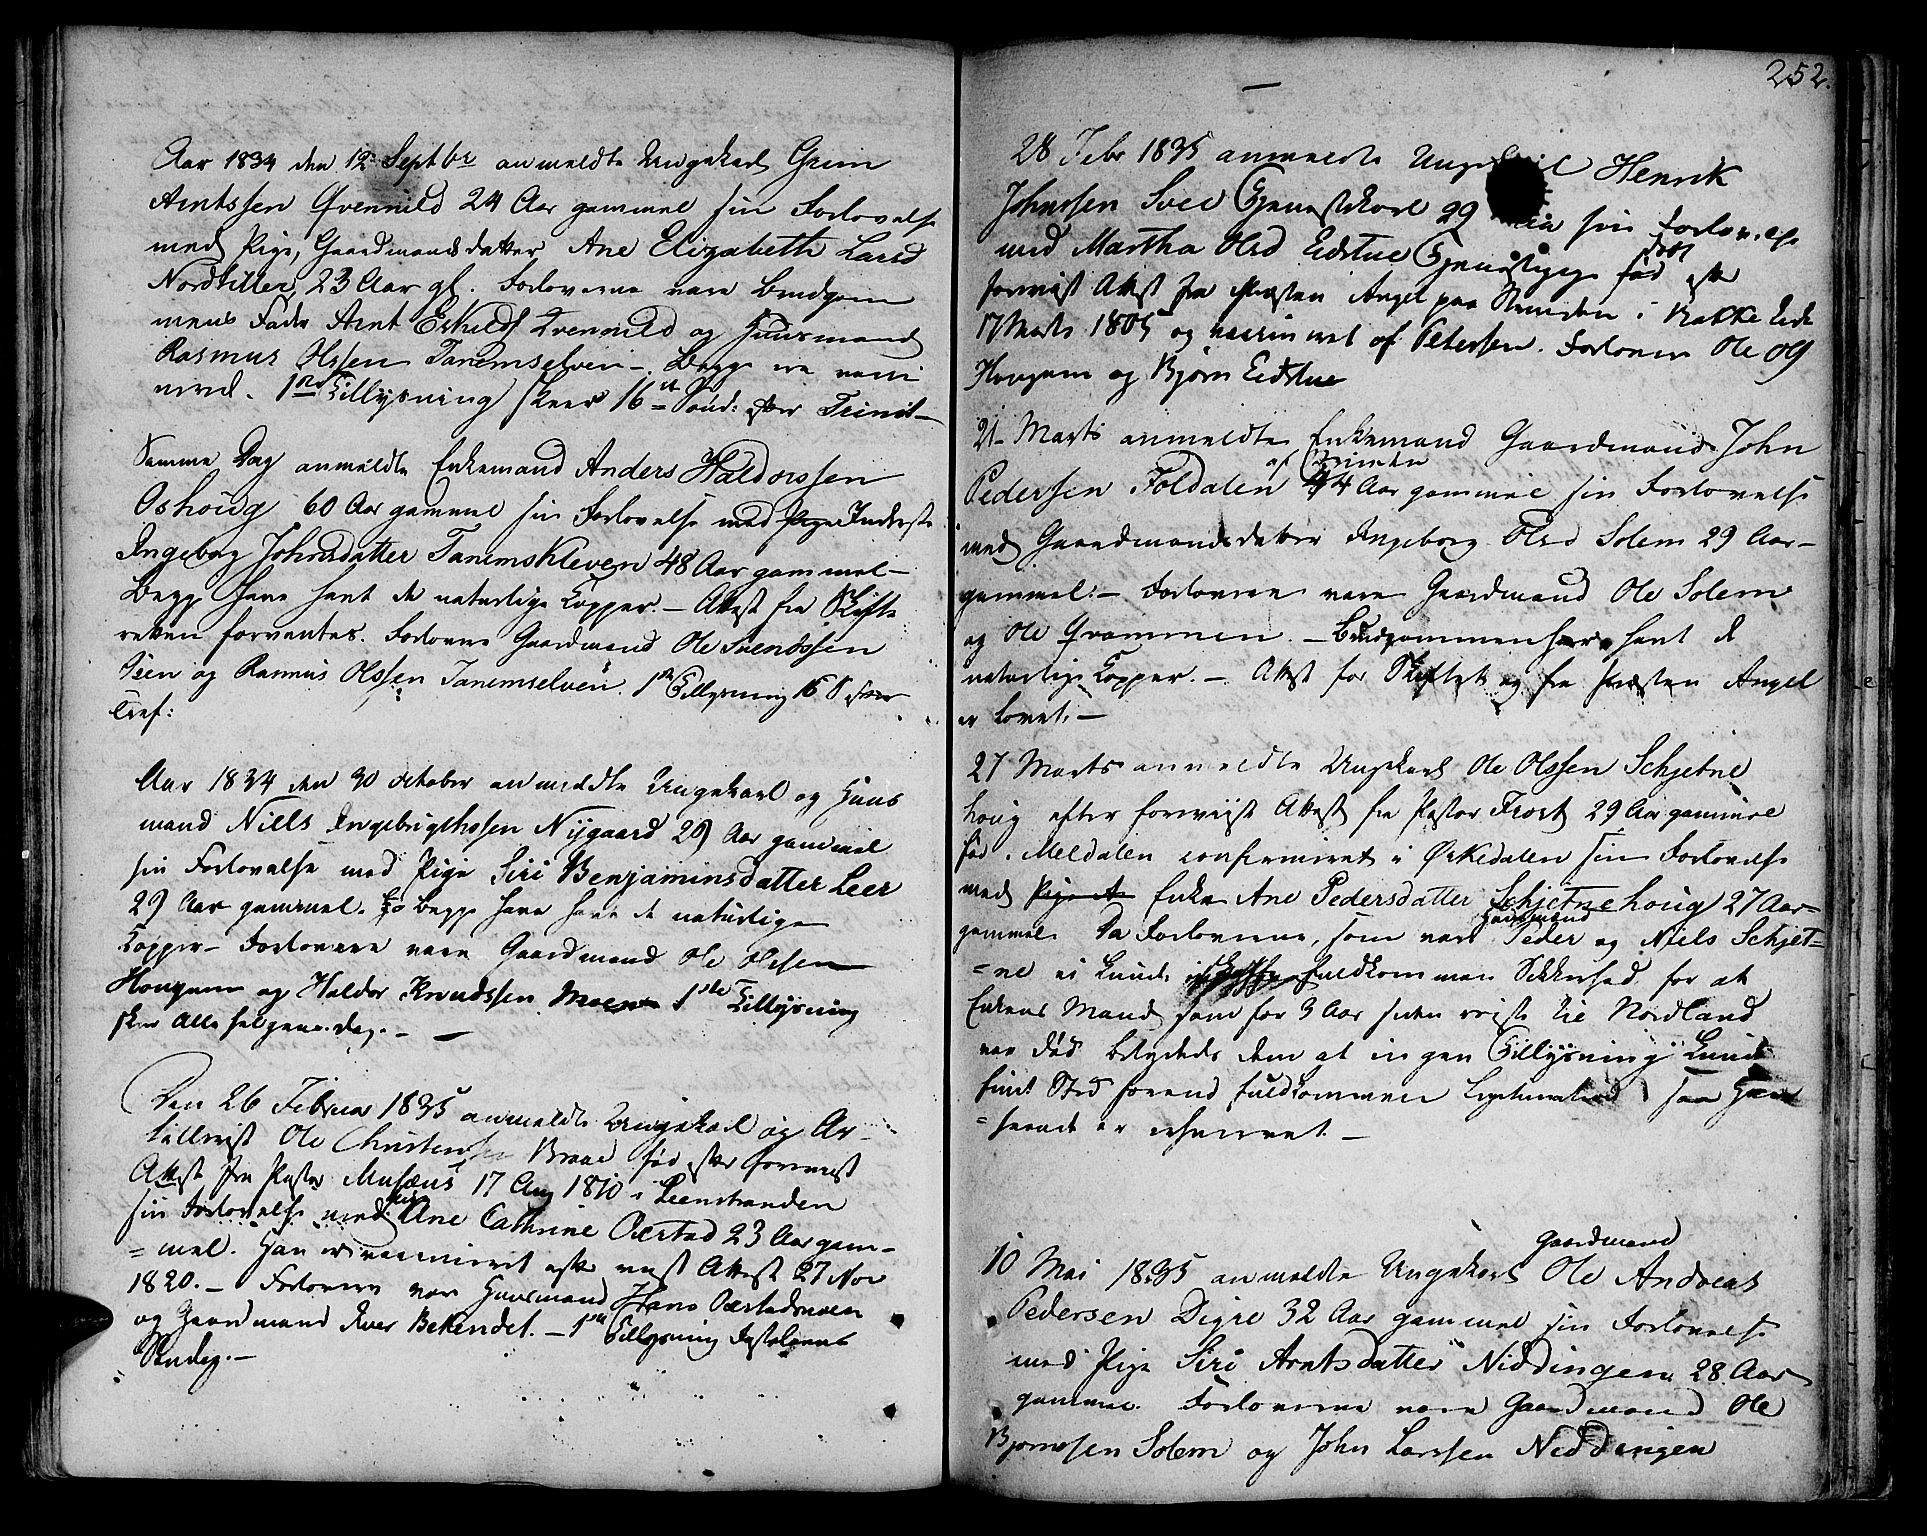 Aar 1834 den 12 Septbr anmeldte Ungekarl Grim
Arntssen Qvenild 24 Aar gammel sin Forlovelse
med Pige, Gaardmandsdatter Ane Elizabeth Larsd
Nordtiller 23 Aar gl. Forloverne vare Brudgom
mens Fader Arnt Eskilds Qvenild og Huusmand
Rasmus Olssen Tanemselven. Begge ere vacci
nered. 1ste Tillysning skeer 16de Sønd: efter Trinit
Samme Dag anmeldte Enkemand Anders Haldorssen
Oshoug 60 Aar gammel sin Forlovelse med Pige Inderste
Ingeborg Johnsdatter Tanemskleven 48 Aar gammel
Begge have havt de naturlige Kopper. Attest fra Skifte
retten forventes. Forlovere Gaardmand Ole Svendssen
og Rasmus Olssen Tanemselven. 1ste Tillysning 16 S
Tref:
Aar 1834 den 30 October anmeldte Ungekarl og Huus
mand Niels Ingebrigthssen Nygaard 29 Aar gammel
sin Forlovelse med Pige Siri Benjaminsdatter Leer
29 Aar gammel. Begge have havt de naturlige
Kopper. Forlovere vare Gaardmand Ole Olssen
Hougum og Haldor Knudssen Moen 1ste Tillysning
skeer Alle helgens dag. —
Den 26 Februar 1835 anmeldte Ungekarl og Ar
tillerist Ole Christensen Braae fød efter foreviist
Attest fra Pastor Musæus 17 Aug 1810 i Leenstranden
sin Forlovelse med Pige Ane Cathrine Oxstad 23 Aar gam-
=mel. Han er vaccineret efter Attest 27 Nov
1820. — Forlovere vare Huusmand Hans
og Gaardmand Iver Bekendet. — 1ste Tillysning Fastelavns
Søndag. —
252.
28 Febr 1835 anmeldte Henrik
Johnssen Svee 29 sin Forlovelse
med Martha Olsd Eidstue fød efter
foreviist Attest fra Præsten Angel paa Strinden i
17 Marts 1805 og vaccineret af Petersen. Forlovere Ole
Hougum og Bjørn Eidstue
21 Marts anmeldte Enkemand Gaardmand John
Pedersen Foldalen 44 Aar gammel sin Forlovelse
med Gaardmandsdatter Ingeborg Olsd Solem 29 Aar
gammel. — Forlovere vare Gaardmand Ole Solem
og Ole Qvammen. — Brudgommen har havt de
naturlige Kopper. — Attest for Skiftet og fra Præsten Angel
er lovet. —
27 Marts anmeldte Ungekarl Ole Olssen Schjetne
houg efter foreviist Attest fra Pastor Frost 29 Aar gammel
fød i Meldalen confirmeret i Ørkedalen sin Forlovelse
med Enke Ane Pedersdatter Schjetnehoug 27 Aar
gammel. Da Forloverne, som vare Gaardmænd Peder og Niels Schjet=
=ne ei kunde fuldkommen Sikkerhed for at
Enkens Mand som for 3 Aar siden reiste til Nordland
var død betydedes dem at ingen Tillysning kunde
finde Sted forend fuldkommen saa
10 Mai 1835 anmeldte Ungekarl Gaardmand Ole Andreas
Pedersen Digre 32 Aar gammel sin Forlovelse
med Pige Siri Arntsdatter Niddingen 28 Aar
gammel. Forloverne vare Gaardmand Ole
Bjørnssen Solem og John Larssen Niddingen